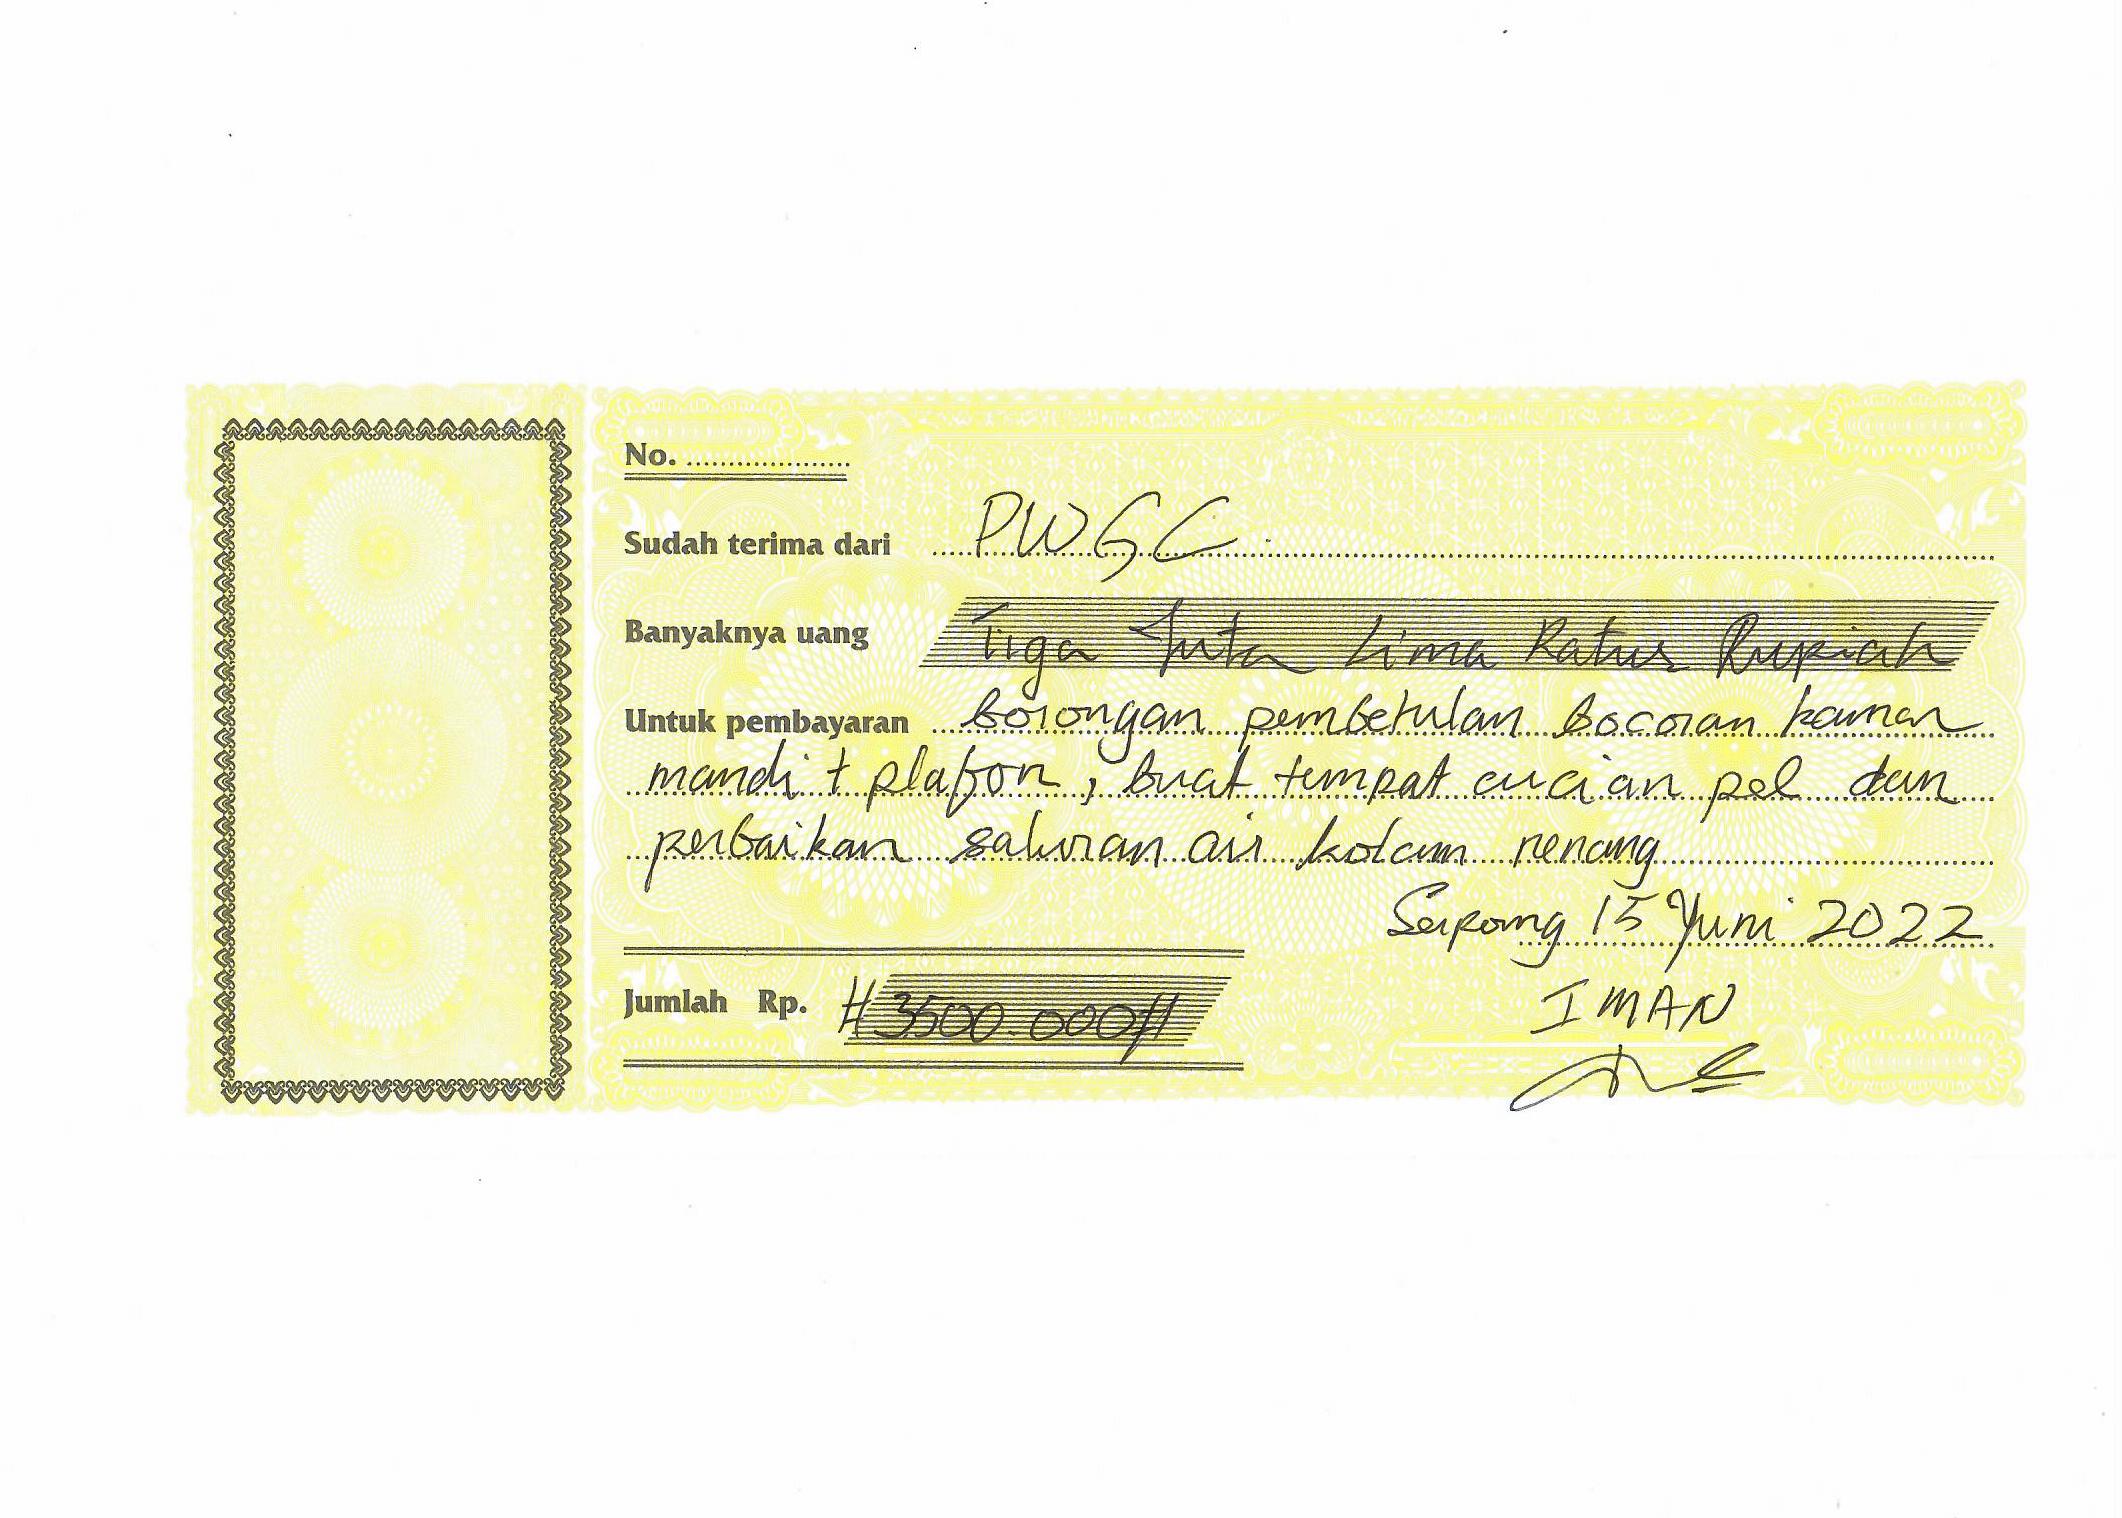 No. ....................
Sudah terima dari PWGC
Banyaknya uang Tiga Juta Lima Ratus Rupiah
Untuk pembayaran borongan pembetulan bocoran kamar
mandi + plafon, buat tempat cucian pel dan
perbaikan saluran air kolam renang
Serpong 15 Juni 2022
Jumlah Rp. #3500.000#
IMAN